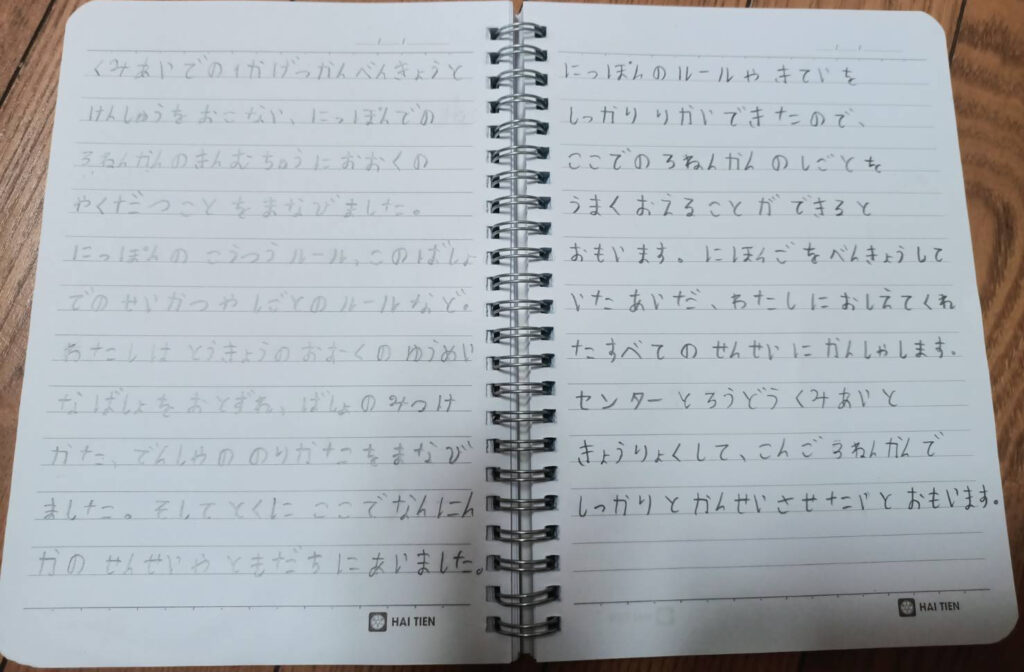 くみあいでの1かげつかんべんきょうと
けんしゅうを おこない、にっぽんでの
3ねんかんのきんむちゅうにおおくの
やくだつことをまなびました。
にっぽんの こうつうルール、このばしょ
でのせいかつやしごとのルールなど。
わたしは とうきょうのおおくのゆうめい
なばしょをおとずれ、ばしょのみつけ
かた、でんしゃののりかたこをまなび
ました。そしてとくにここでなんにん
かのせんせいやともだちにあいました。
HAI TIEN
にっぽんのルールやきていを
しっかりりかいできたので、
ここでの3ねんかんのしごとを
うまくおえることができると
おもいます。にほんごをべんきょうして
いたあいだ、わたしにおしえてくれ
たすべてのせんせいにかんしゃします。
センターとろうどうくみあいと
きょうりょくして、こんご3ねんかんで
しっかりとかんせいさせたいとおもいます。
HAI TIEN